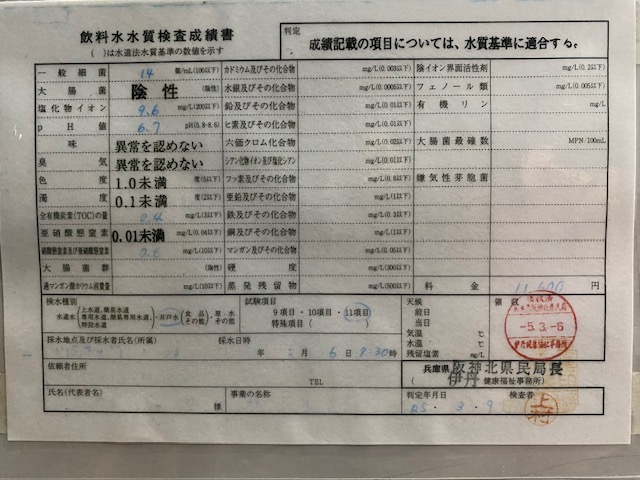 飲料水水質検査成績書
( )は水道法水質基準の数値を示す
判定
成績記載の項目については、水質基準に適合する。
一般細菌 14 個/mL(100以下)
大腸菌 陰性 (陰性)
塩化物イオン 9.6 mg/L(200以下)
pH値 6.7 pH(5.8-8.6)
味 異常を認めない
臭気 異常を認めない
色度 1.0未満 度(5以下)
濁度 0.1未満 度(2以下)
全有機炭素(TOC)の量 0.4 mg/L(3以下)
亜硝酸態窒素 0.01未満 mg/L(0.04以下)
硝酸態窒素及び亜硝酸態窒素 mg/L(10以下)
大腸菌群 (陰性)
過マンガン酸カリウム消費量 mg/L(10以下)
カドミウム及びその化合物 mg/L(0.003以下)
水銀及びその化合物 mg/L(0.0005以下)
鉛及びその化合物 mg/L(0.01以下)
ヒ素及びその化合物 mg/L(0.01以下)
六価クロム化合物 mg/L(0.02以下)
シアン化物イオン及び塩化シアン mg/L(0.01以下)
フッ素及びその化合物 mg/L(0.8以下)
亜鉛及びその化合物 mg/L(1以下)
鉄及びその化合物 mg/L(0.3以下)
銅及びその化合物 mg/L(1以下)
マンガン及びその化合物 mg/L(0.05以下)
硬度 mg/L(300以下)
蒸発残留物 mg/L(500以下)
陰イオン界面活性剤 mg/L(0.2以下)
フェノール類 mg/L(0.005以下)
有機リン mg/L
大腸菌最確数 MPN/100mL
嫌気性芽胞菌
料金 11,600 円
検水種別
水道水 (上水道、簡易水道、専用水道、簡易専用水道、特設水道)・井戸水(食品 その他)・原水 その他
試験項目
9項目・10項目・11項目
特殊項目( )
天候
前日
当日
気温 ℃
水温 ℃
残留塩素 mg/L
領収
-5.3.-6
採水地点及び採水者氏名(所属)
採水日時
年 6 9:30時
依頼者住所
TEL
氏名(代表者名) 様
事業の名称
兵庫県 阪神北県民局長
伊丹 健康福祉事務所)
判定年月日
R5・3・9
検査者
上村